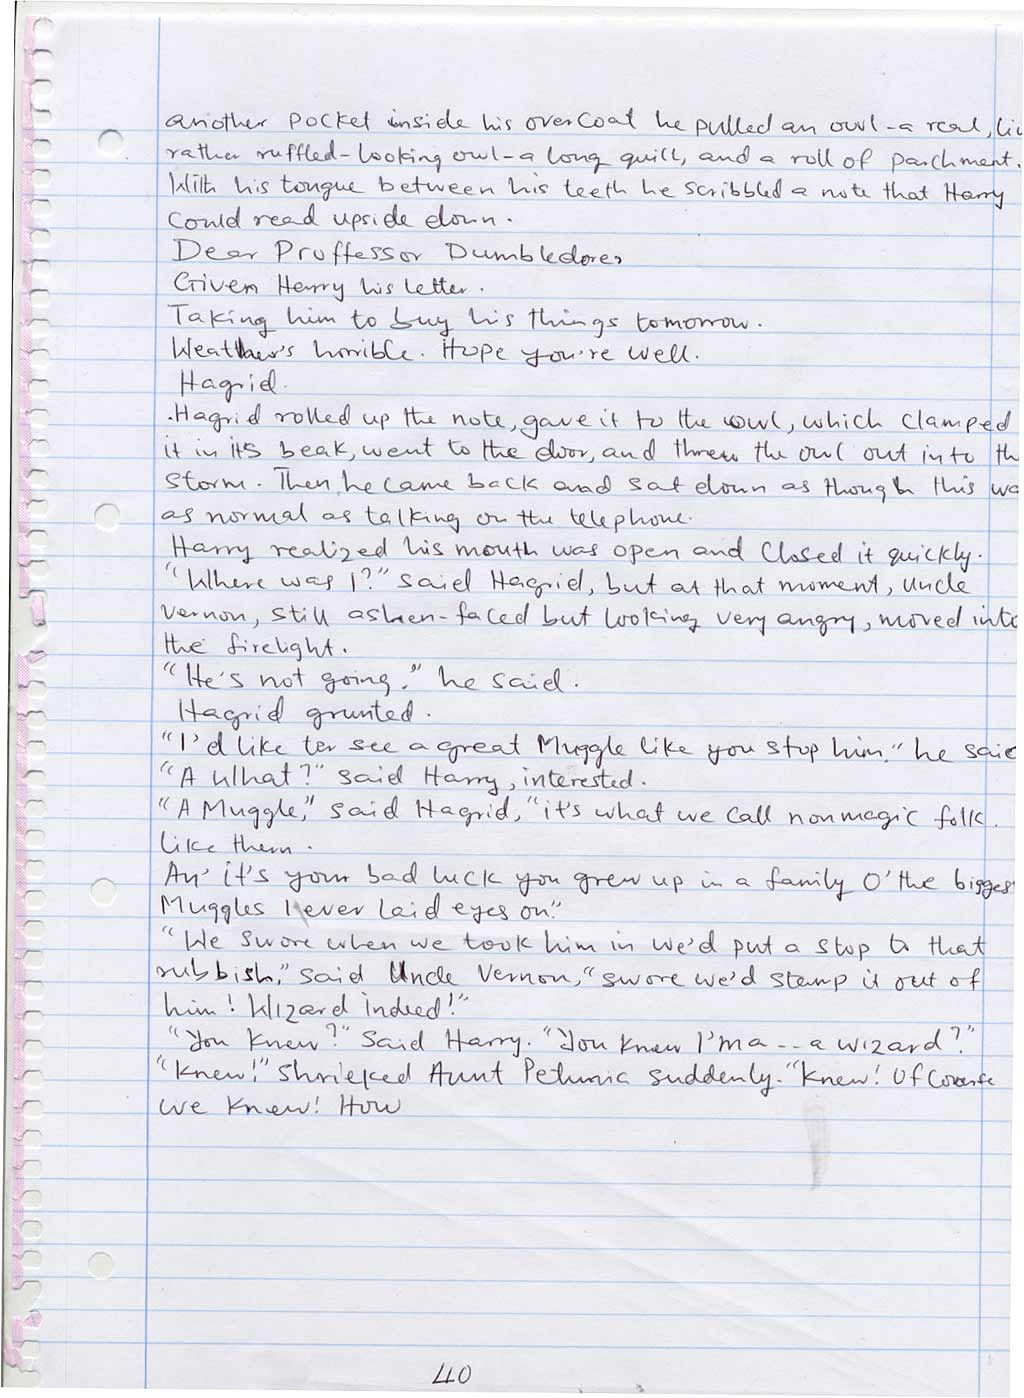 another pocket inside his overcoat he pulled an owl-a real, liv
rather ruffled-looking owl-a long quill, and a roll of parchment.
With his tongue between his teeth he scribbled a note that Harry
could read upside down.
Dear Proffessor Dumbledore,
Given Harry his letter.
Taking him to buy his things tomorrow.
Weather's horrible. Hope you're well.
Hagrid.
.Hagrid rolled up the note, gave it to the owl, which clamped
it in its beak, went to the door, and threw the owl out into th
storm. Then he came back and sat down as though this wa
as normal as talking on the telephone.
Harry realized his mouth was open and closed it quickly.
"Where was I?" said Hagrid, but at that moment, uncle
Vernon, still ashen-faced but looking very angry, moved into
the firelight.
"He's not going." he said.
Hagrid grunted.
"I'd like ter see a great Muggle like you stop him." he said
"A what?" said Harry, interested.
"A Muggle," said Hagrid, "it's what we call nonmagic folk
like them.
An' it's your bad luck you grew up in a family O' the bigges
Muggles I ever laid eyes on."
"We swore when we took him in we'd put a stop to that
rubbish," said Uncle Vernon, "swore we'd stamp it out of
him! Wizard indeed!"
"You knew?" said Harry. "You knew I'm a -- a wizard?"
"Knew!" shrieked Aunt Petunia suddenly. "Knew! Of Course
we knew! How
40